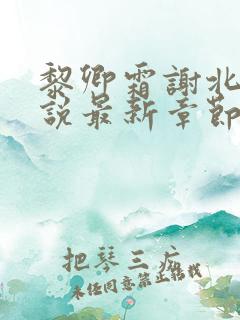 黎卿霜謝北
說最新章節
把琴三疾
未任同意禁止轉我